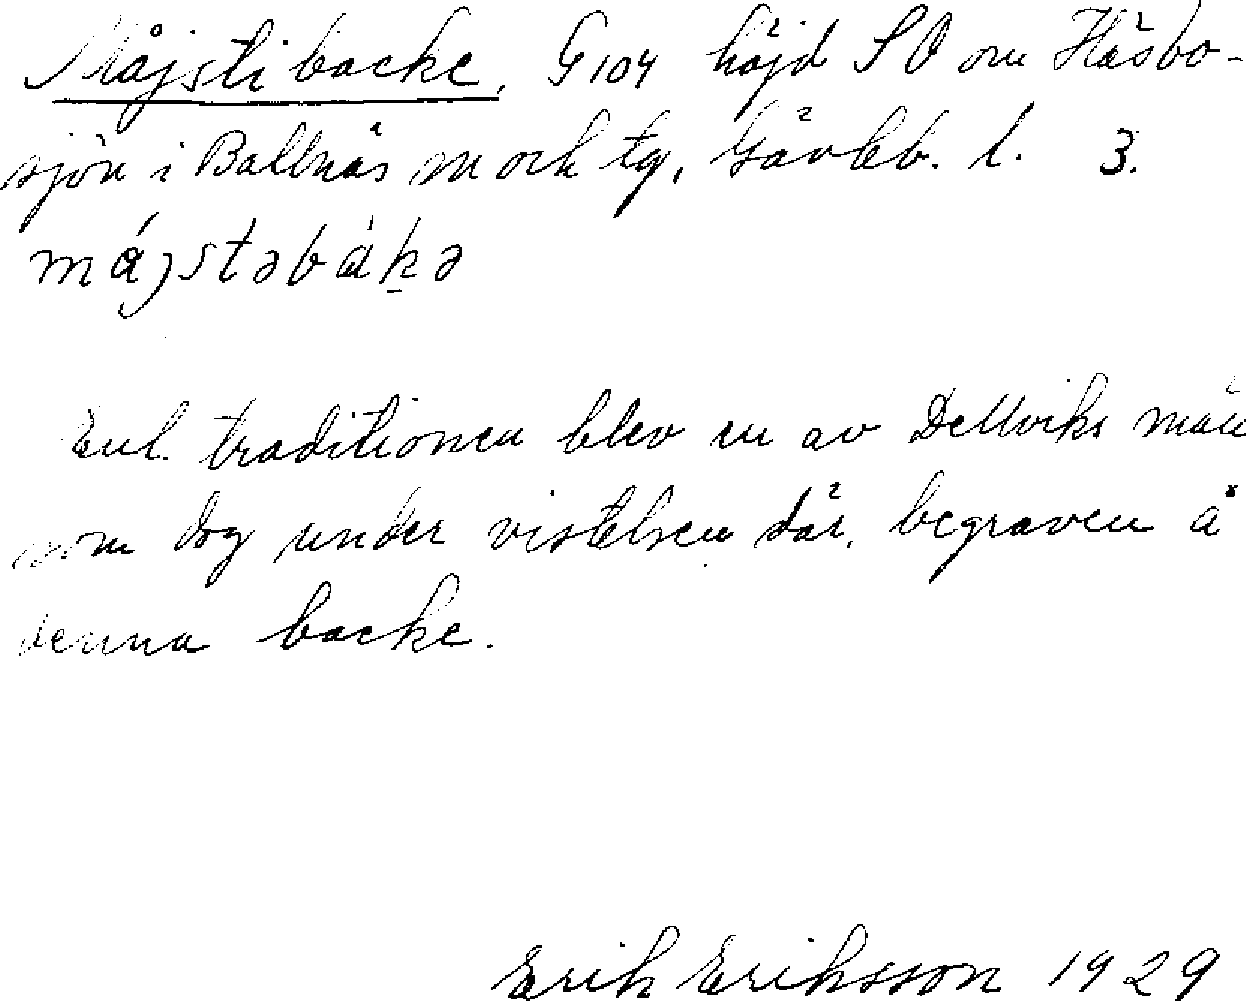 Måjstibacke, G 104 höjd SO om Häsbo-
sjön i Bollnäs sn och tg, Gävleb. l. 3.
májstəbàkə
Enl. traditionen blev en av Dellwiks män
som dog under vistelsen där, begraven å
denna backe.
Erik Eriksson 1929